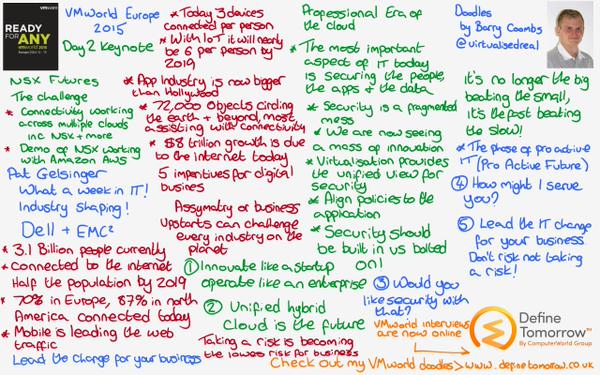 vmware
READY
FOR
ANY
vmworld 2015
VMWorld Europe
2015
Day 2 Keynote
NSX Futures
The challenge
* Connectivity working
across multiple clouds
inc NSX + more
* Demo of NSX working
with Amazon AWS
Pat Gelsinger
What a week in IT!
Industry shaping!
Dell + EMC²
* 3.1 Billion people currently
* connected to the internet
Half the population by 2019
* 70% in Europe, 87% in north
America connected today
* Mobile is leading the web
traffic
Lead the change for your business
* Today 3 devices
connected per person
* With IoT it will nearly
be 6 per person by
2019
* App Industry is now bigger
than Hollywood
* 72,000 Objects circling
the earth + beyond, most
assisting with connectivity
* $8 trillion growth is due
to the internet today
5 imperitives for digital
busines
Assymatry of business
Upstarts can challenge
every industry on the
planet
① Innovate like a startup
operate like an enterprise
② Unified hybrid
Cloud is the future
Taking a risk is becoming
the lowes risk for business
Professional Era of
the cloud
* The most important
aspect of IT today
is securing the people,
the apps + the data
* Security is a fragmented
mess
* We are now seeing
a mass of innovation
* Virtualisation provides
the unified view for
security
* Align policies to the
application
* Security should
be built in vs bolted
on!
③ Would you
like security with
that?
VMworld interviews
are now online
Doodles
by Barry Coombs
@virtualisedreal
It's no longer the big
beating the small,
it's the fast beating
the slow!
* The phase of pro active
IT (Pro Active Future)
④ How might I serve
you?
⑤ Lead the IT change
for your business
Don't risk not taking
a risk!
Define
Tomorrow™
By ComputerWorld Group
Check out my VMworld doodles > www.definetomorrow.co.uk